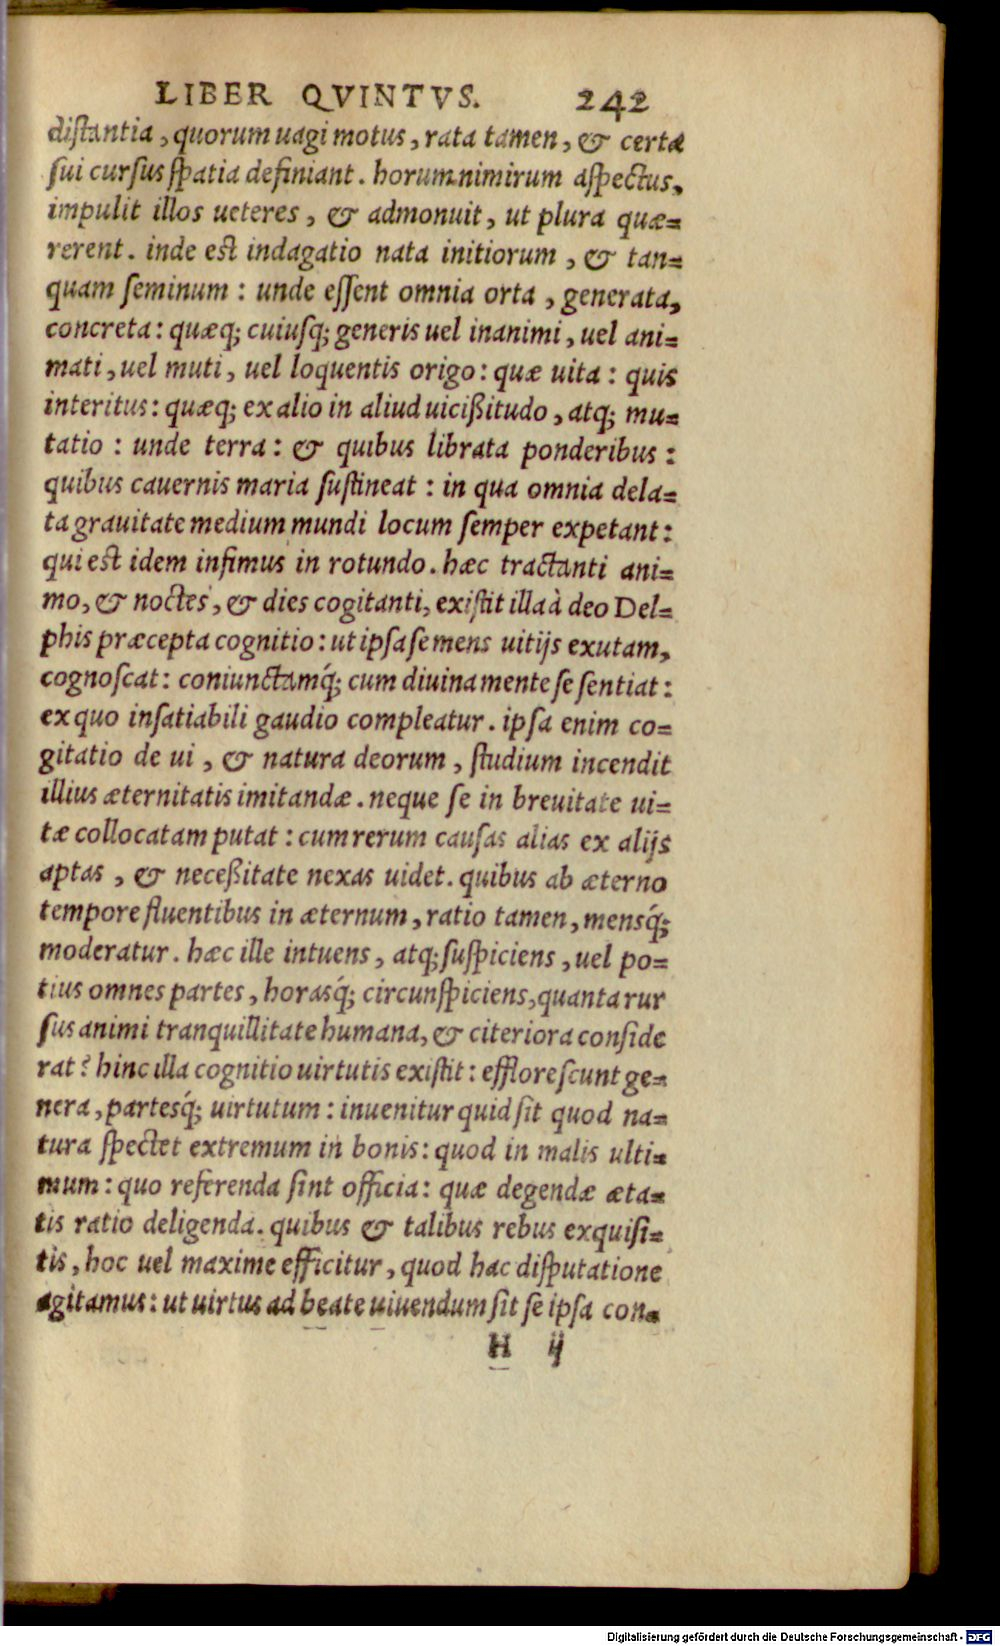 LIBER QVINTVS. 242
distantia, quorum uagi motus, rata tamen, & certa
sui cursus spatia definiant. horum nimirum aspectus,
impulit illos ueteres, & admonuit, ut plura quæ=
rerent. inde est indagatio nata initiorum, & tan=
quam seminum: unde essent omnia orta, generata,
concreta: quæq; cuiusq; generis uel inanimi, uel ani=
mati, uel muti, uel loquentis origo: quæ uita: quis
interitus: quæq; ex alio in aliud uicißitudo, atq; mu=
tatio: unde terra: & quibus librata ponderibus:
quibus cauernis maria sustineat: in qua omnia dela=
ta grauitate medium mundi locum semper expetant:
qui est idem infimus in rotundo. hæc tractanti ani=
mo, & noctes, & dies cogitanti, existit illa à deo Del=
phis præcepta cognitio: ut ipsa se mens uitijs exutam,
cognoscat: coniunctamq́; cum diuina mente se sentiat:
ex quo insatiabili gaudio compleatur. ipsa enim co=
gitatio de ui, & natura deorum, studium incendit
illius æternitatis imitandæ. neque se in breuitate ui=
tæ collocatam putat: cum rerum causas alias ex alijs
aptas, & neceßitate nexas uidet. quibus ab æterno
tempore fluentibus in æternum, ratio tamen, mensq́;
moderatur. hæc ille intuens, atq; suspiciens, uel po=
tius omnes partes, horasq́; circunspiciens, quanta rur
sus animi tranquillitate humana, & citeriora conside
rat? hinc illa cognitio uirtutis existit: efflorescunt ge=
nera, partesq́; uirtutum: inuenitur quid sit quod na=
tura spectet extremum in bonis: quod in malis ulti=
mum: quo referenda sint officia: quæ degendæ æta=
tis ratio deligenda. quibus & talibus rebus exquisi=
tis, hoc uel maxime efficitur, quod hac disputatione
agitamus: ut uirtus ad beate uiuendum sit se ipsa con=
H ij
Digitalisierung gefördert durch die Deutsche Forschungsgemeinschaft - DFG